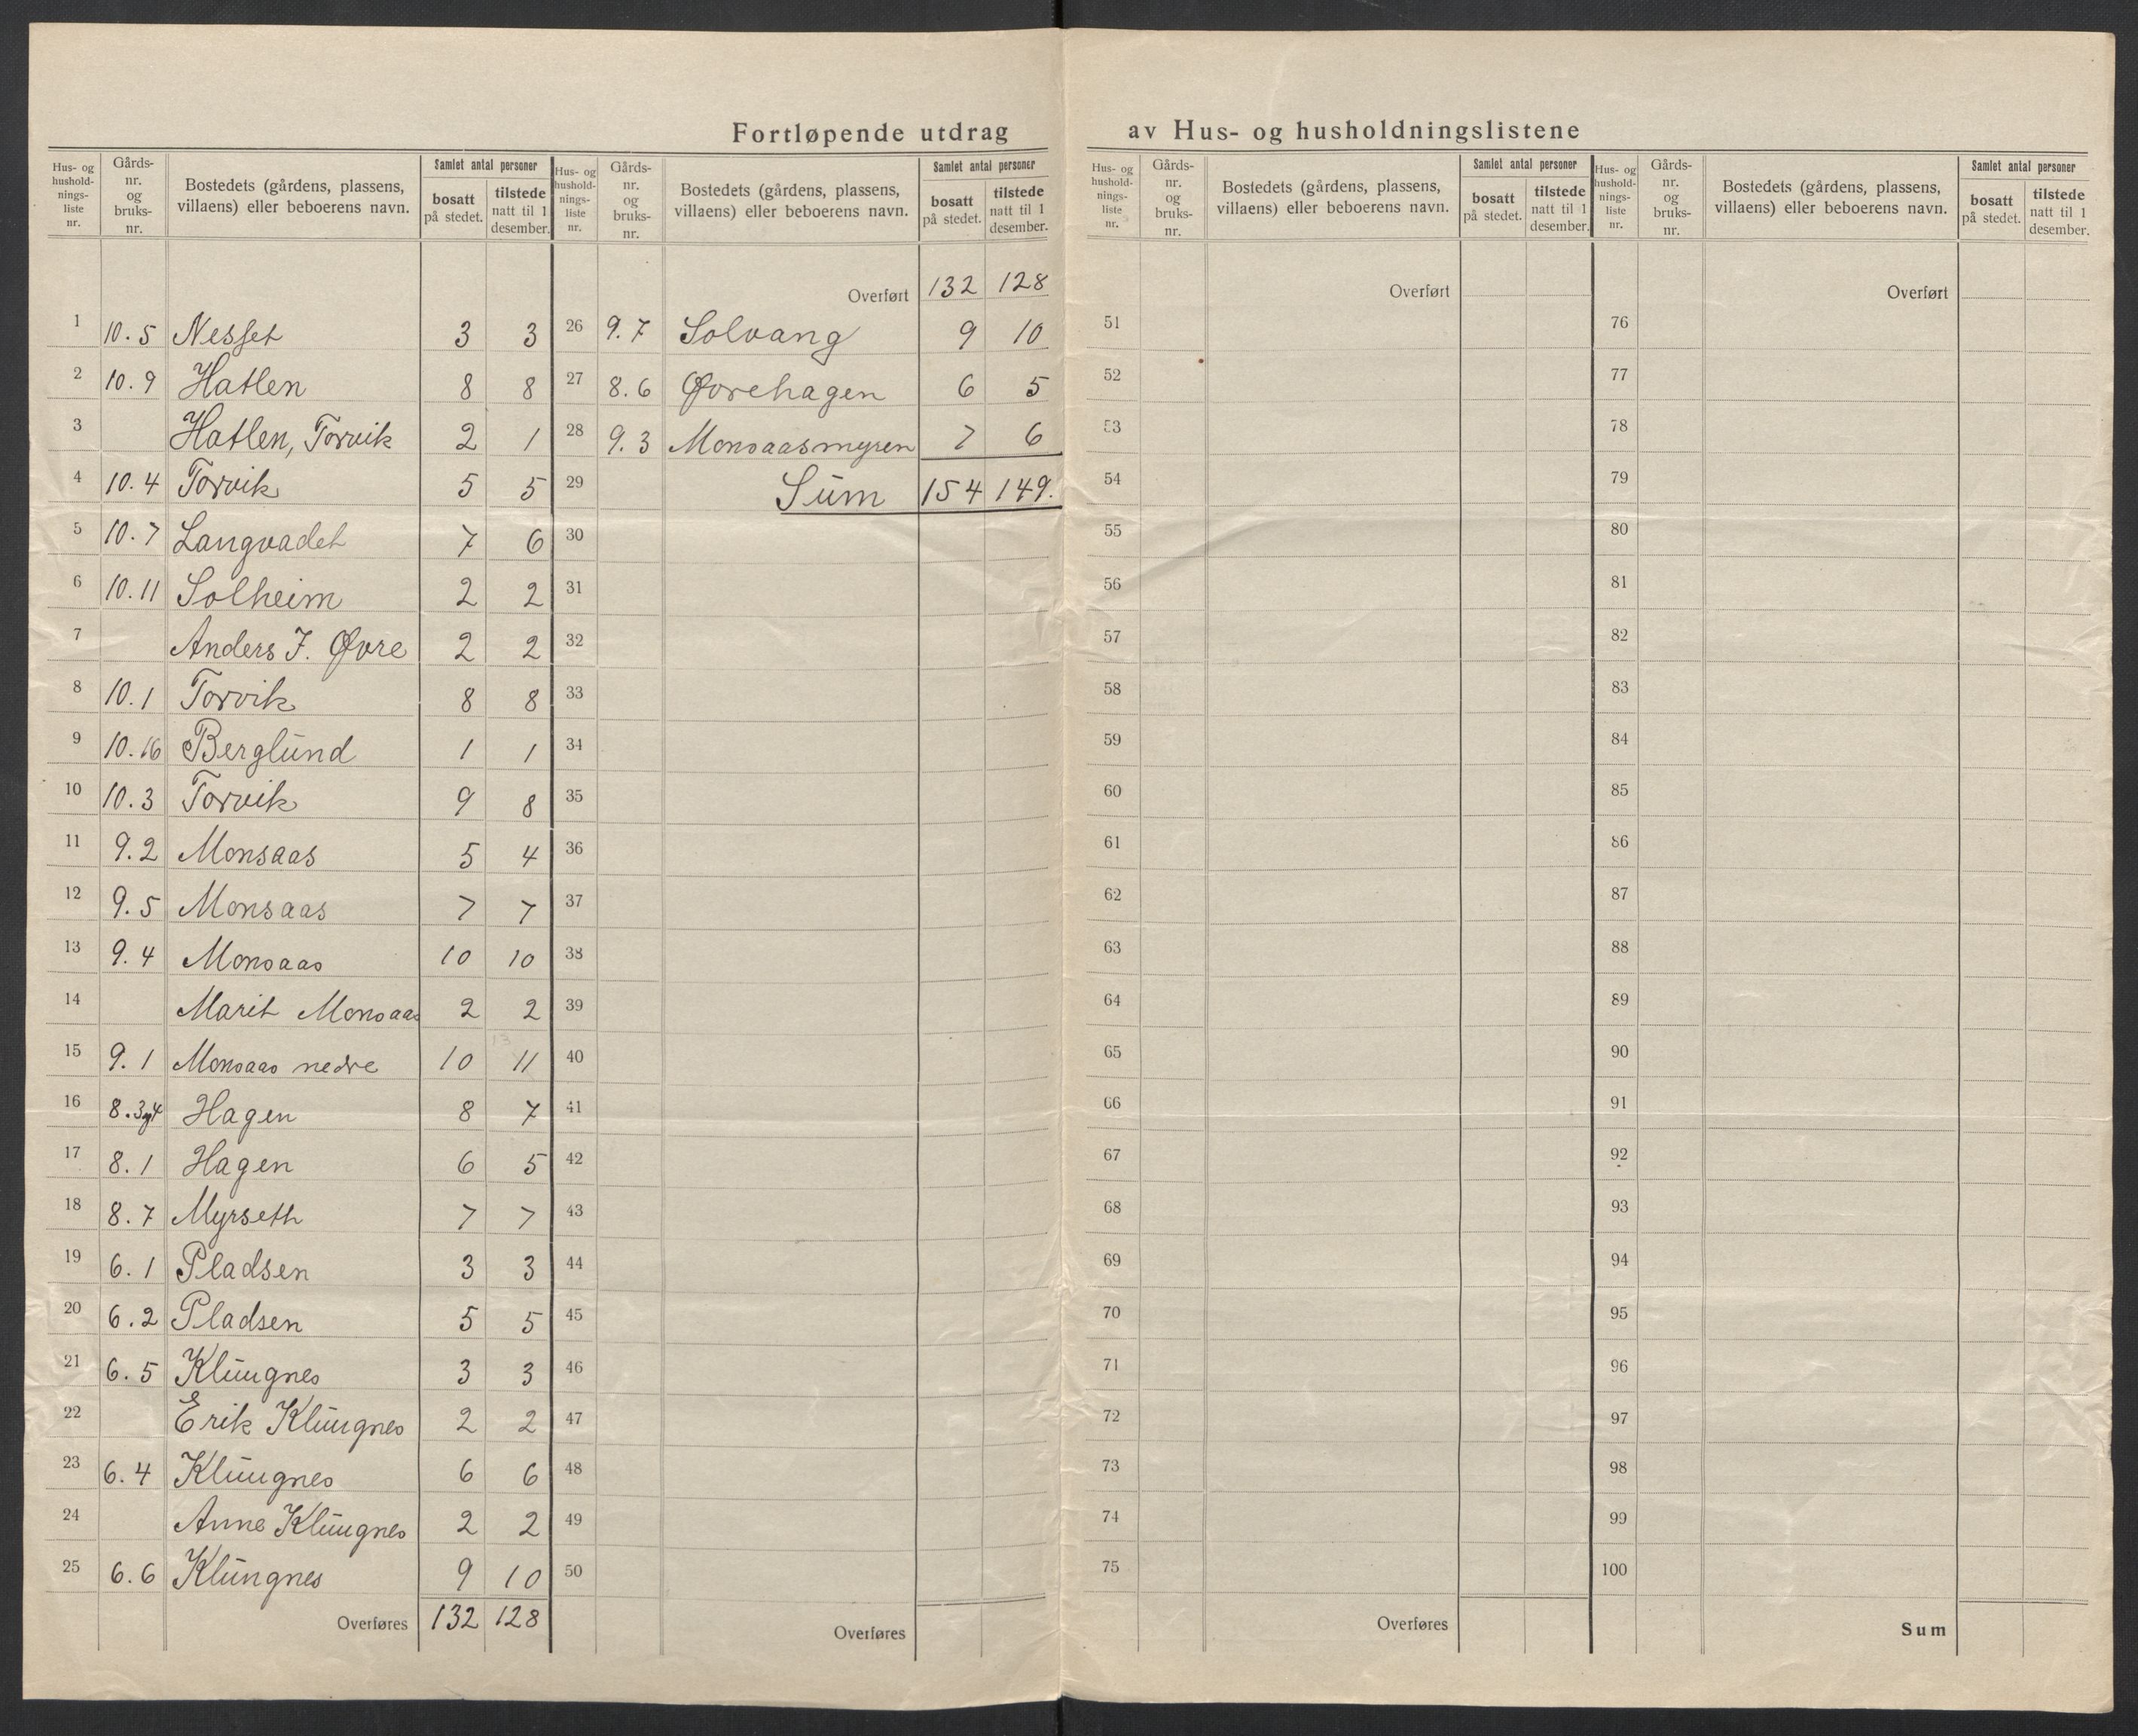 Fortløpende utdrag av Hus- og husholdningslistene
Hus- og hushold-nings-liste nr. Gårds-nr. og bruks-nr. Bostedets (gårdens, plassens, villaens) eller beboerens navn. Samlet antal personer bosatt på stedet. tilstede natt til 1 desember.
1 10.5 Nesset 3 3
2 10.9 Hatlen 8 8
3 Hatlen, Torvik 2 1
4 10.4 Torvik 5 5
5 10.7 Langvadet 7 6
6 10.11 Solheim 2 2
7 Anders J. Øvre 2 2
8 10.1 Torvik 8 8
9 10.16 Berglund 1 1
10 10.3 Torvik 9 8
11 9.2 Monsaas 5 4
12 9.5 Monsaas 7 7
13 9.4 Monsaas 10 10
14 Marit Monsaas 2 2
15 9.1 Monsaas nedre 10 11
16 8.3og4 Hagen 8 7
17 8.1 Hagen 6 5
18 8.7 Myrseth 7 7
19 6.1 Pladsen 3 3
20 6.2 Pladsen 5 5
21 6.5 Klungnes 3 3
22 Erik Klungnes 2 2
23 6.4 Klungnes 6 6
24 Anne Klungnes 2 2
25 6.6 Klungnes 9 10
Overføres 132 128
Hus- og hushold-nings-liste nr. Gårds-nr. og bruks-nr. Bostedets (gårdens, plassens, villaens) eller beboerens navn. Samlet antal personer bosatt på stedet. tilstede natt til 1 desember.
Overført 132 128
26 9.7 Solvang 9 10
27 8.6 Øvrehagen 6 5
28 9.3 Monsaasmyren 7 6
29 Sum 154 149.
30
31
32
33
34
35
36
37
38
39
40
41
42
43
44
45
46
47
48
49
50
Overføres
Hus- og hushold-nings-liste nr. Gårds-nr. og bruks-nr. Bostedets (gårdens, plassens, villaens) eller beboerens navn. Samlet antal personer bosatt på stedet. tilstede natt til 1 desember.
Overført
51
52
53
54
55
56
57
58
59
60
61
62
63
64
65
66
67
68
69
70
71
72
73
74
75
Overføres
Hus- og hushold-nings-liste nr. Gårds-nr. og bruks-nr. Bostedets (gårdens, plassens, villaens) eller beboerens navn. Samlet antal personer bosatt på stedet. tilstede natt til 1 desember.
Overført
76
77
78
79
80
81
82
83
84
85
86
87
88
89
90
91
92
93
94
95
96
97
98
99
100
Sum